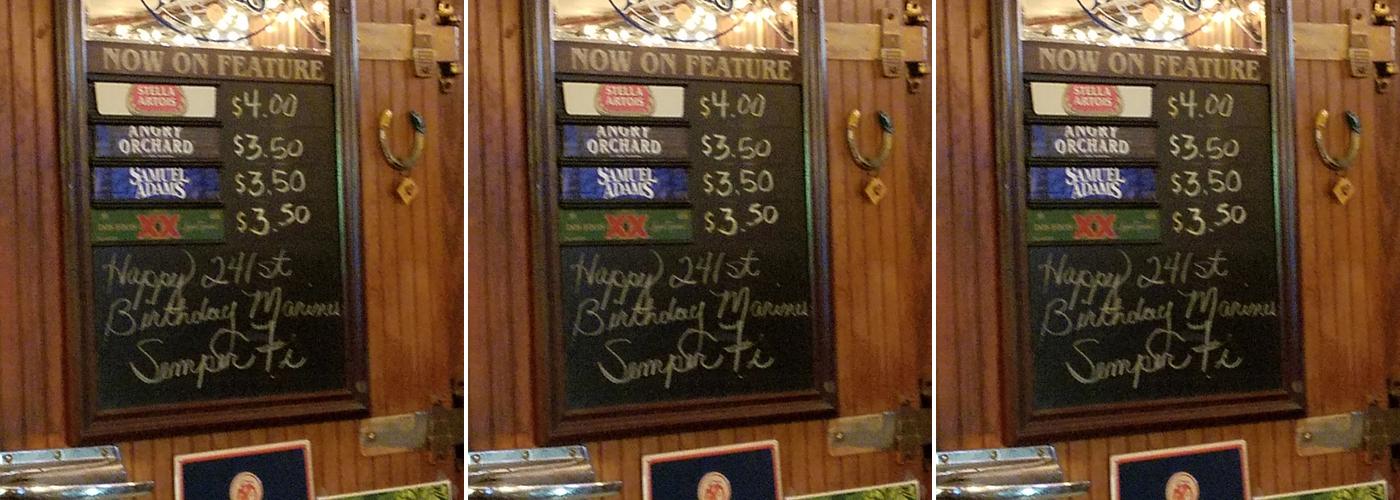 NOW ON FEATURE
STELLA ARTOIS $4.00
ANGRY ORCHARD $3.50
SAMUEL ADAMS $3.50
XX $3.50
Happy 241st
Birthday Marines
Semper Fi
NOW ON FEATURE
STELLA ARTOIS $4.00
ANGRY ORCHARD $3.50
SAMUEL ADAMS $3.50
XX $3.50
Happy 241st
Birthday Marines
Semper Fi
NOW ON FEATURE
STELLA ARTOIS $4.00
ANGRY ORCHARD $3.50
SAMUEL ADAMS $3.50
XX $3.50
Happy 241st
Birthday Marines
Semper Fi